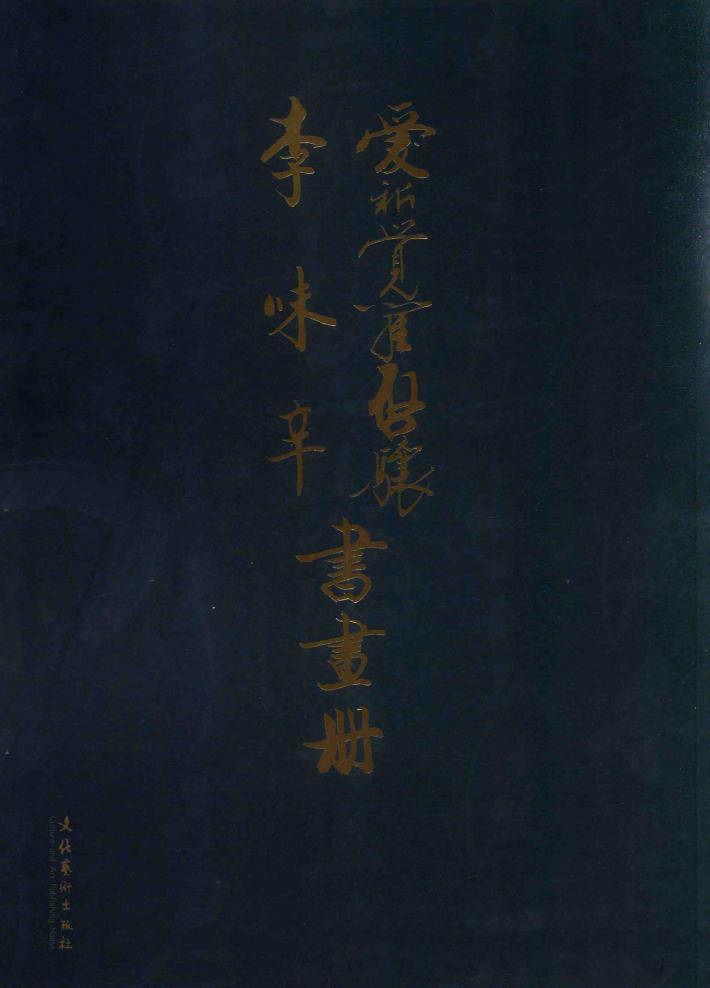 愛新覚羅啟驤
李味辛
書畫册
文化藝術出版社
Culture and Art Publishing House